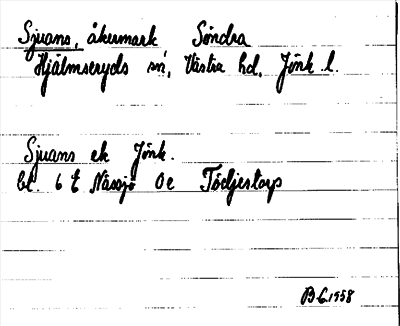 Sjuans, åkermark Södra
Hjälmseryds sn, Västra hd, Jönk. l.
Sjuans ek Jönk.
bl. 6 f Nässjö Oe
BC 1958